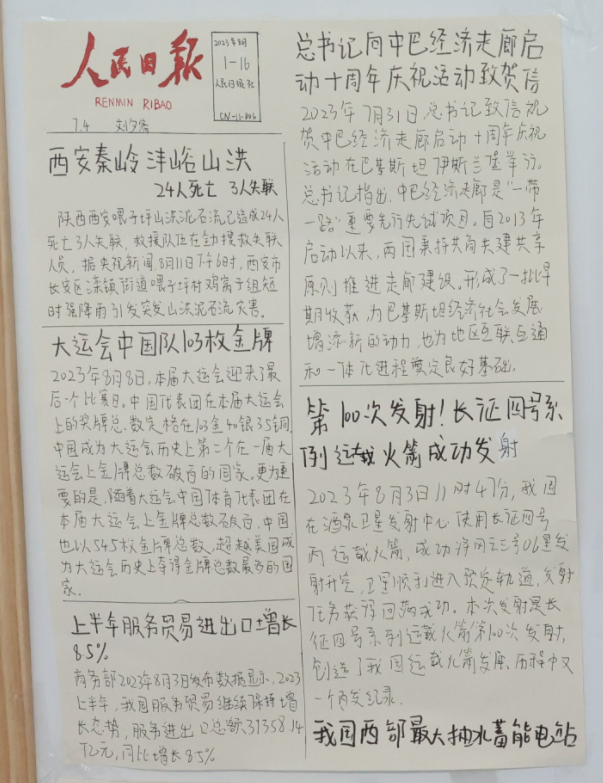 人民日报
RENMIN RIBAO
2023年8月
1-16
人民日报社
CN-11-
7.4
西安秦岭沣峪山洪
24人死亡 3人失联
陕西西安喂子坪山洪泥石流已造成24人
死亡3人失联,救援队伍在全力搜救失联
人员。据央视新闻,8月11日下午6时,西安市
长安区滦镇街道喂子坪村鸡窝子组短
时强降雨引发突发山洪泥石流灾害。
大运会中国队103枚金牌
2023年8月8日,本届大运会迎来了最
后个比赛日。中国代表团在本届大运会
上的奖牌总数定格在103金40银35铜,
中国成为大运会历史上第二个在一届大
运会上金牌总数破百的国家。更为重
要的是,随着大运会中国体育代表团在
本届大运会上金牌总数破百,中国
也以545枚金牌总数,超越美国成
为大运会历史上夺得金牌总数最多的国
家。
上半年服务贸易进出口增长
8.5%
商务部2023年8月3日发布数据显示,2023
上半年,我国服务贸易继续保持增
长态势,服务进出口总额31358.14
亿元,同比增长8.5%
总书记向中巴经济走廊启
动十周年庆祝活动致贺信
2023年7月31日,总书记致信祝
贺中巴经济走廊启动十周年庆祝
活动在巴基斯坦伊斯兰堡举行。
总书记指出,中巴经济走廊是“一带
一路”重要先行先试项目。自2013年
启动以来,两国秉持共商共建共享
原则推进走廊建设。形成了一批早
期收获,为巴基斯坦经济社会发展
增添新的动力,也为地区互联互通
和一体化进程奠定良好基础。
第100次发射!长征四号系
例运载火箭成功发射
2023年8月3日11时47分,我国
在酒泉卫星发射中心使用长征四号
丙运载火箭,成功将风云三号06星发
射升空,卫星顺利进入预定轨道,发射
任务获得圆满成功。本次发射是长
征四号系列运载火箭第100次发射,
创造了我国运载火箭发展历程中又
一个百发纪录。
我国西部最大抽水蓄能电站